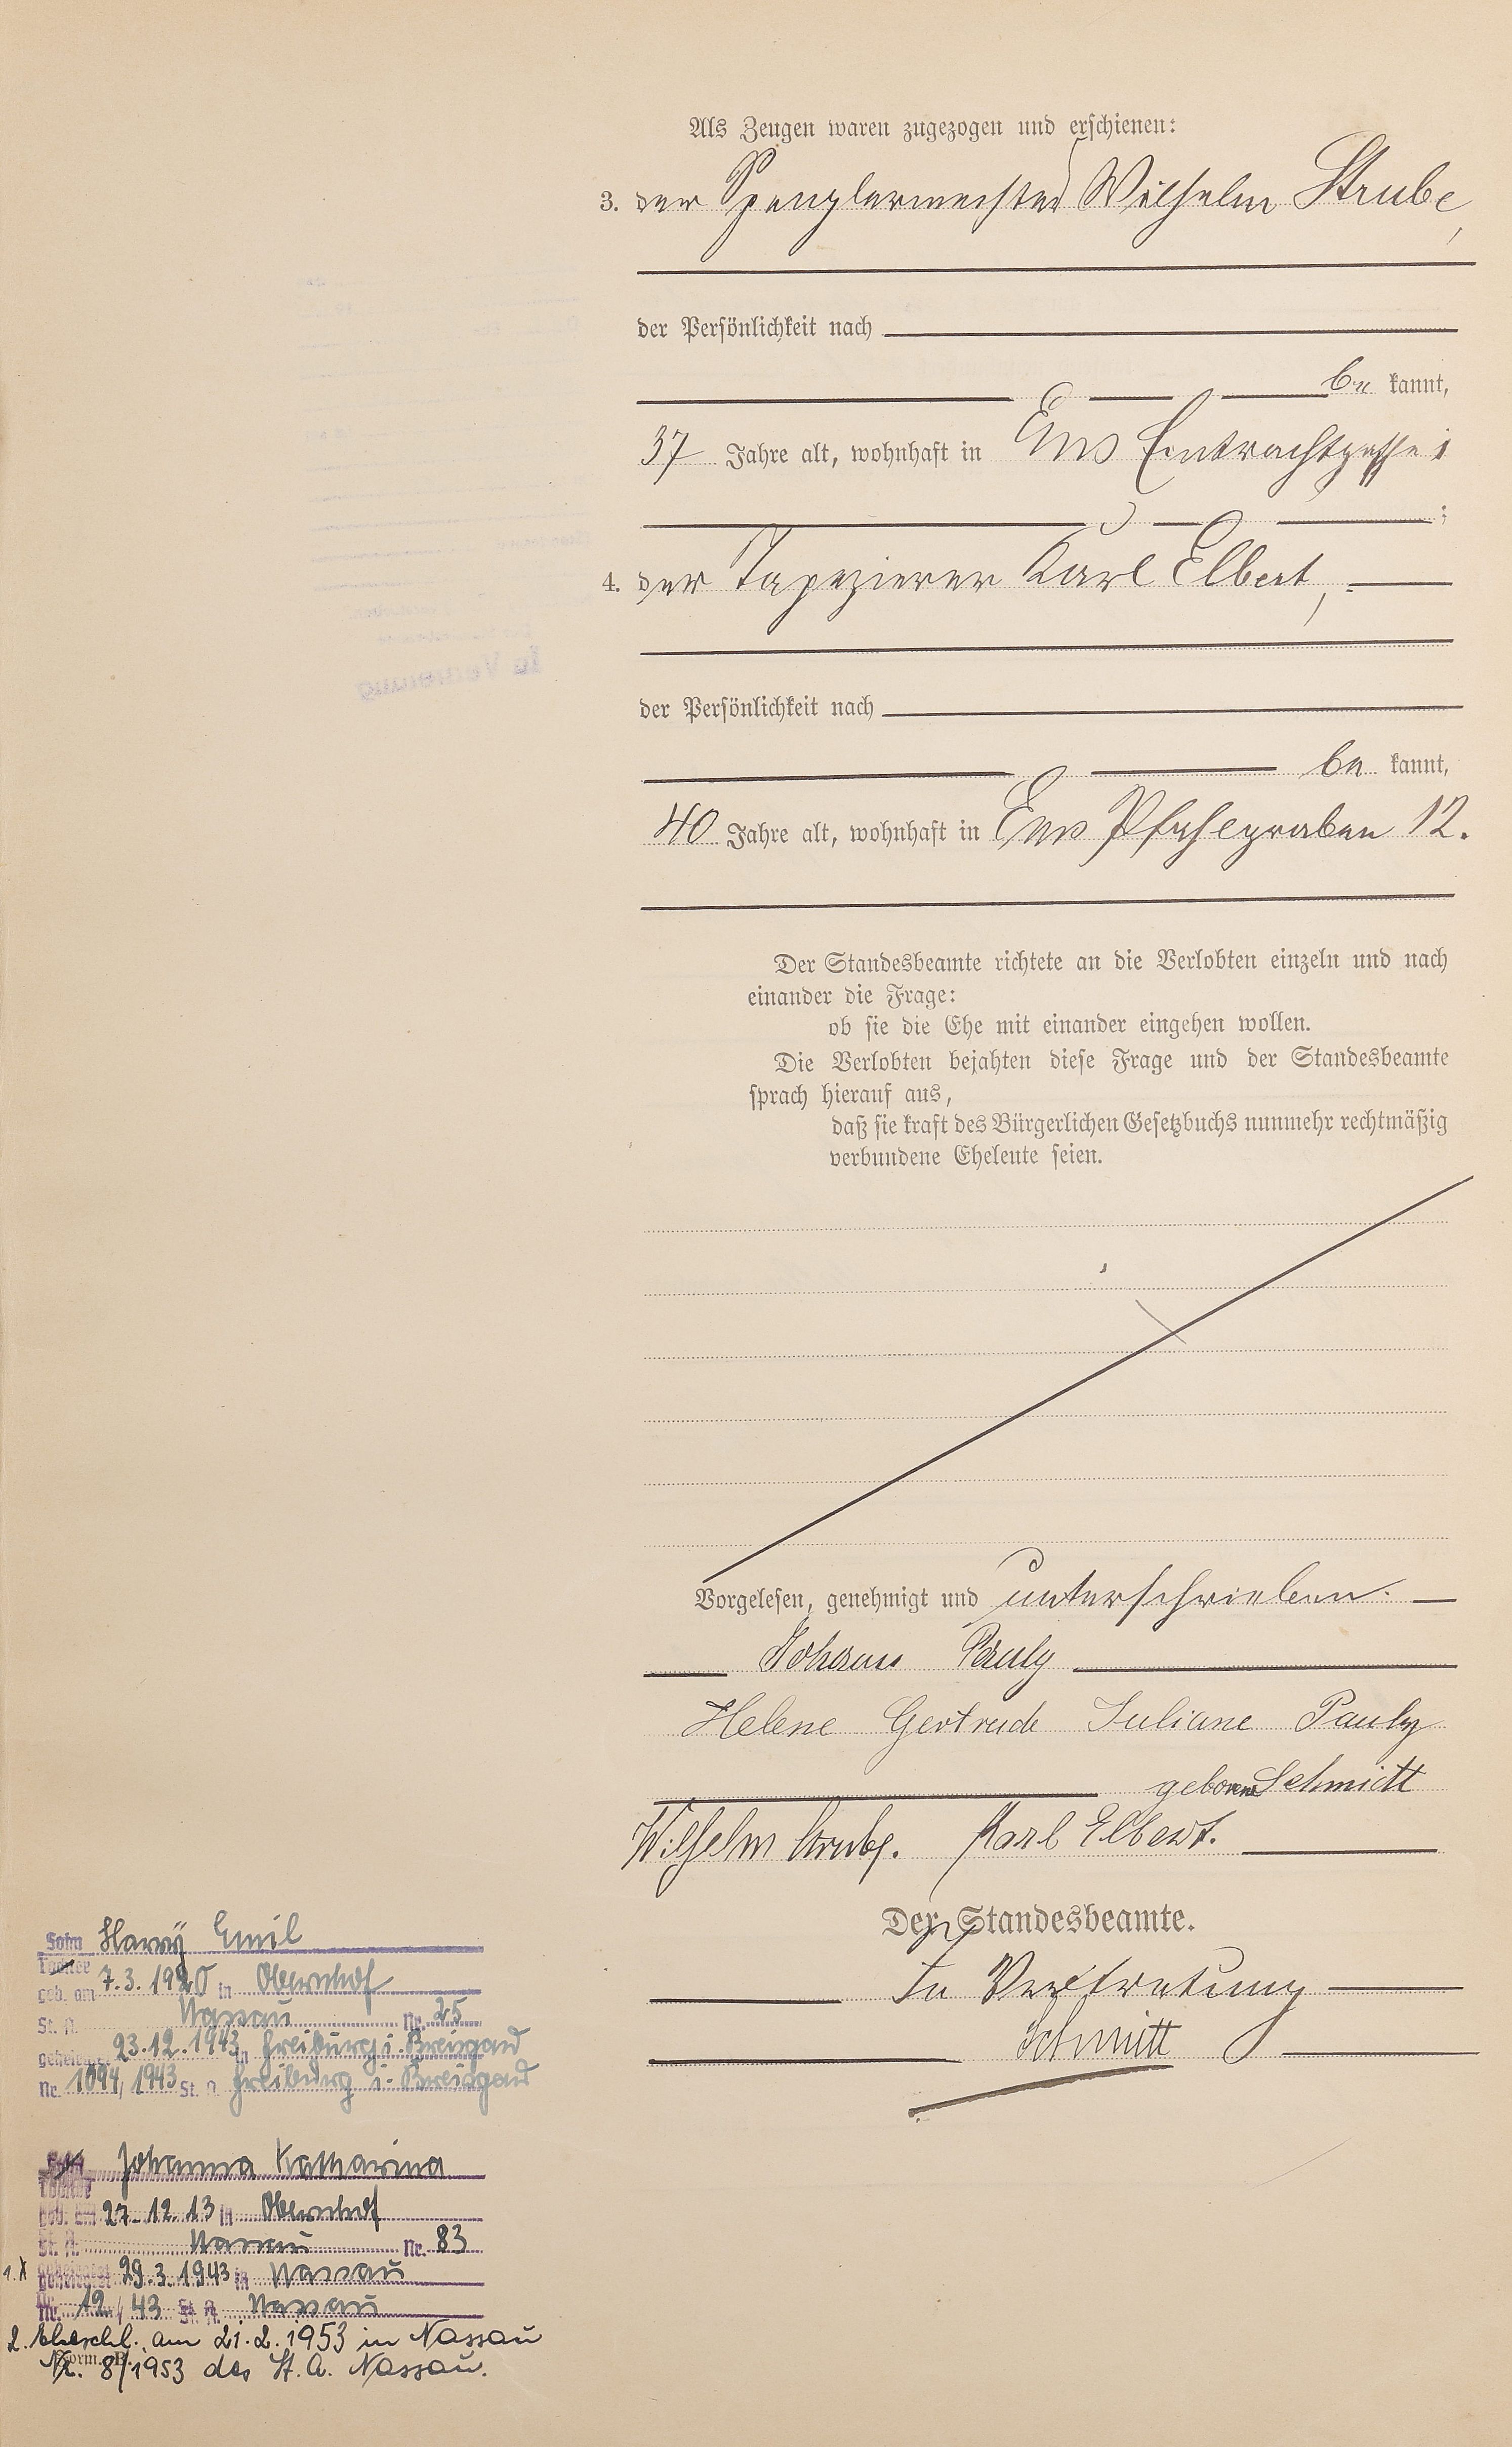 Als Zeugen waren zugezogen und erschienen:
3. der Spenglermeister Wilhelm Strube,
der Persönlichkeit nach
be kannt,
37 Jahre alt, wohnhaft in Ems Eintrachtgasse 1
;
4. der Tapezierer Karl Elbert,
der Persönlichkeit nach
be kannt,
40 Jahre alt, wohnhaft in Ems Pfahlgraben 12.
Der Standesbeamte richtete an die Verlobten einzeln und nach
einander die Frage:
ob sie die Ehe mit einander eingehen wollen.
Die Verlobten bejahten diese Frage und der Standesbeamte
sprach hierauf aus,
daß sie kraft des Bürgerlichen Gesetzbuchs nunmehr rechtmäßig
verbundene Eheleute seien.
Vorgelesen, genehmigt und unterschrieben.
Johann Pauly
Helene Gertrude Juliane Pauly
geborene Schmidt
Wilhelm Strube. Karl Elbert.
Der Standesbeamte.
In Vertretung
Schmitt
Sohn Harry Emil
Tochter
geb. am 7.3.1920 in Obernhof
St. A. Nassau Nr. 25
geheiratet 23.12.1943 in Freiburg i. Breisgau
Nr. 1094/1943 St. A. Freiburg i. Breisgau
Sohn Johanna Katharina
Tochter
geb. am 27.12.13 in Obernhof
St. A. Nassau Nr. 83
1. X geheiratet 29.3.1943 in Nassau
Nr. 12/43 St. A. Nassau
2. Eheschl. am 21.2.1953 in Nassau
Nr. 8/1953 des St. A. Nassau.
Form. B.
In Vertretung